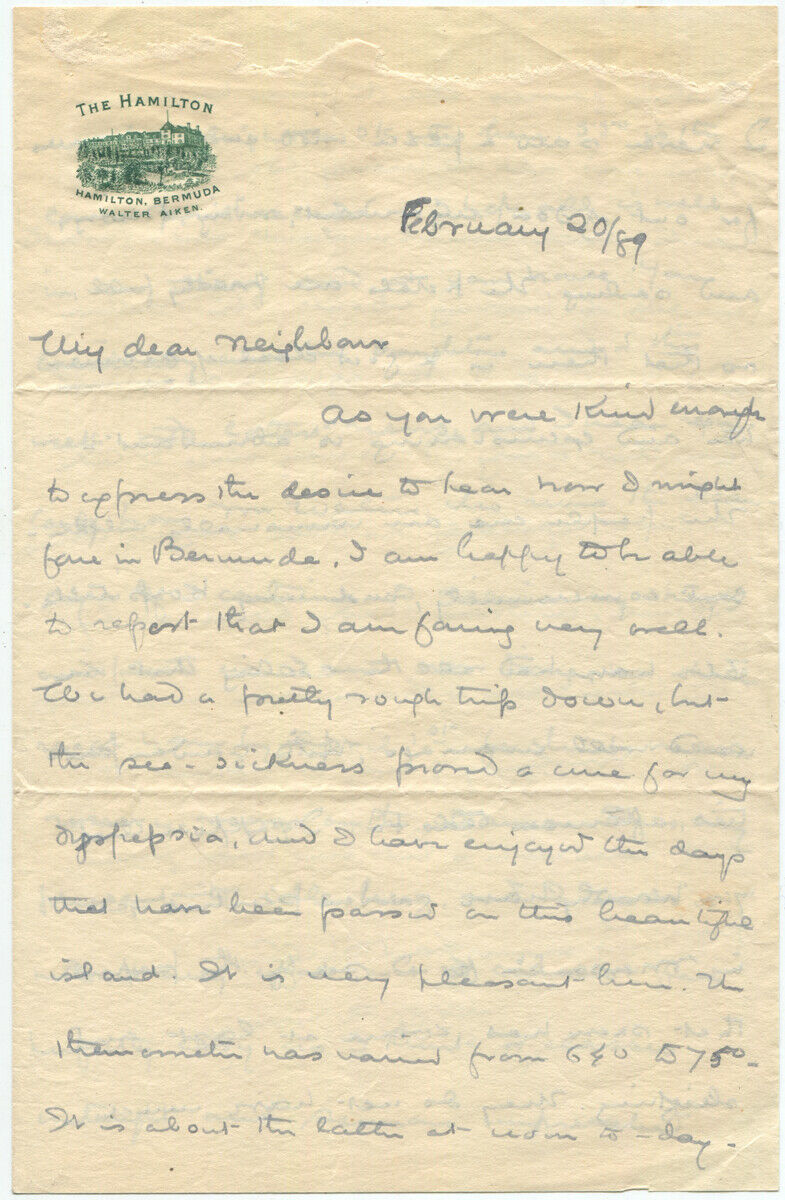 THE HAMILTON
HAMILTON, BERMUDA
WALTER AIKEN.
February 20/89
My dear Neighbour
As you were kind enough
to express the desire to hear how I might
fare in Bermuda, I am happy to be able
to report that I am faring very well.
We had a pretty rough trip down, but
the sea-sickness proved a cure for my
dyspepsia, and I have enjoyed the days
that have been passed on this beautiful
island. It is very pleasant here. The
thermometer has varied from to 75°-
It is about the latter at noon to-day.